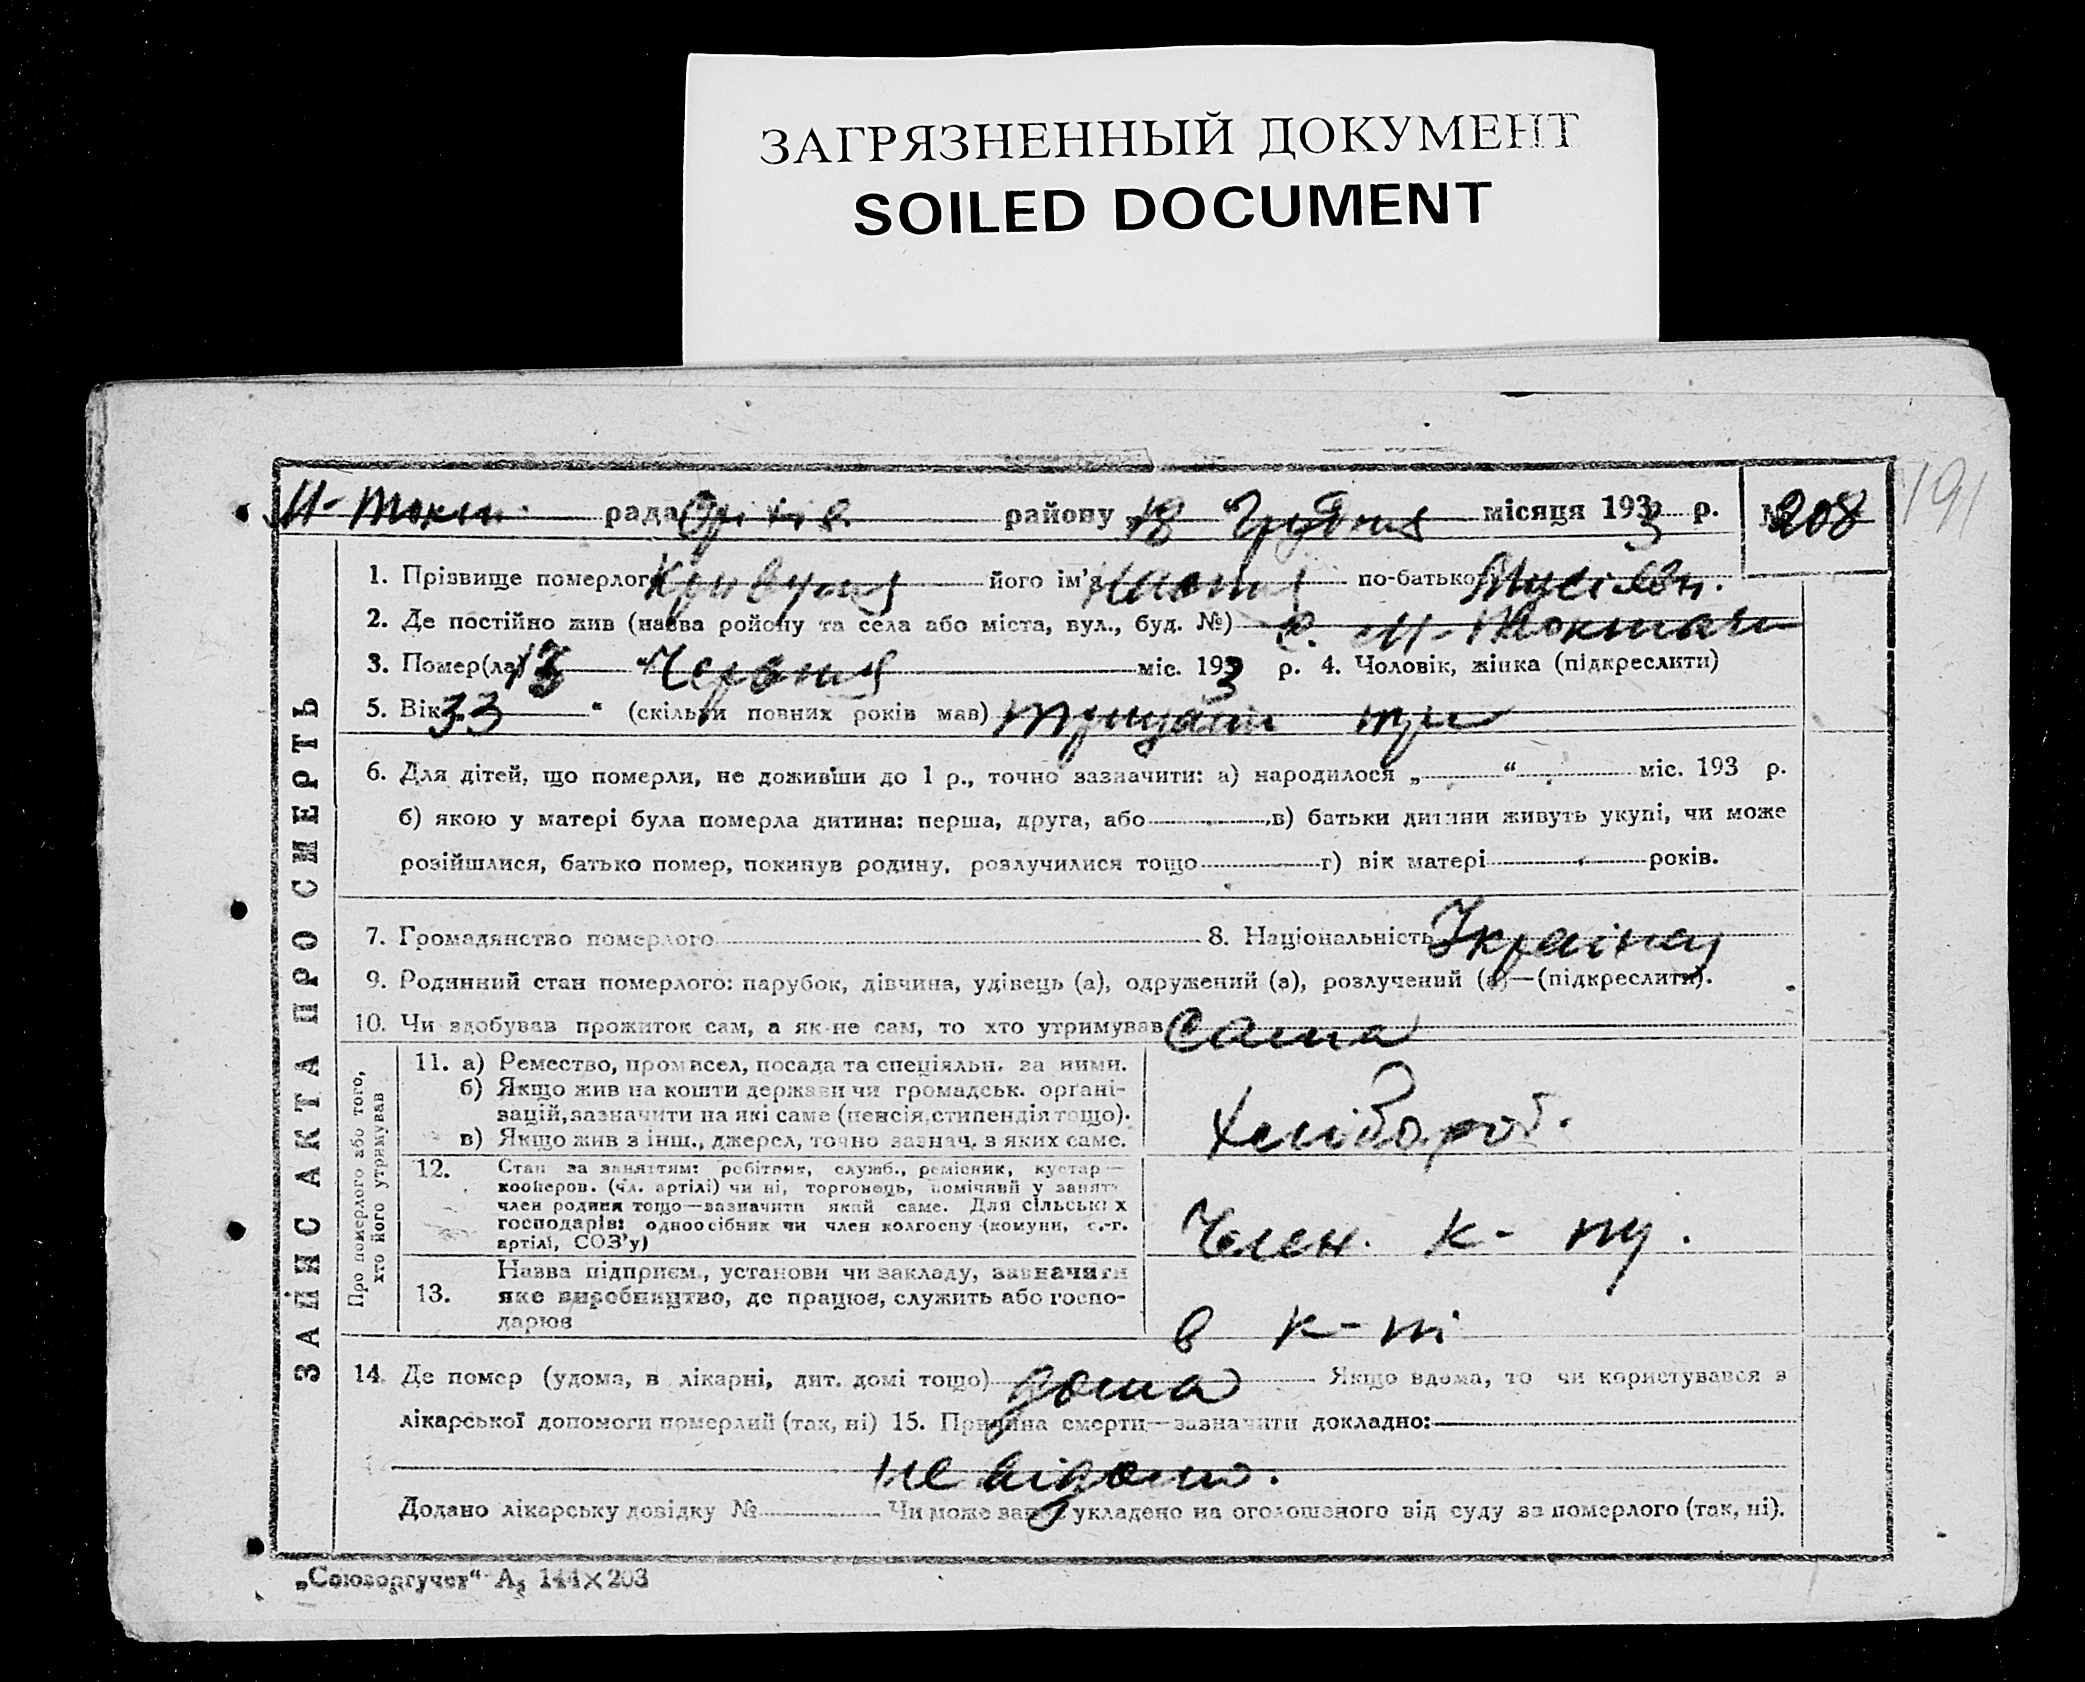 ЗАГРЯЗНЕННЫЙ ДОКУМЕНТ
SOILED DOCUMENT
191
М-Токм. рада Оріхів. району 18 "Грудня місяця 1933 р. № 208
ЗАПИС АКТА ПРО СМЕРТЬ
1. Прізвище померлого його ім'я Настя по-батькові Мусіївн.
2. Де постійно жив (назва району та села або міста, вул., буд. №) с. М-Токмач
3. Помер(ла) 13 "Червня міс. 1933 р. 4. Чоловік, жінка (підкреслити)
5. Вік 33 " (скільки повних років мав) тридцать три
6. Для дітей, що померли, не доживши до 1 р., точно зазначити: а) народилося „ “ міс. 193 р.
б) якою у матері була померла дитина: перша, друга, або в) батьки дитини живуть укупі, чи може
розійшлися, батько помер, покинув родину, розлучилися тощо г) вік матері років.
7. Громадянство померлого 8. Національність Українка
9. Родинний стан померлого: парубок, дівчина, удівець (а), одружений (а), розлучений (а)—(підкреслити).
10. Чи здобував прожиток сам, а як не сам, то хто утримував сама
Про померлого або того, хто його утримував
11. а) Ремество, промисел, посада та спеціяльн. за ними.
б) Якщо жив на кошти держави чи громадськ. органі-
зацій, зазначити на які саме (пенсія, стипендія тощо).
в) Якщо жив з інш., джерел, точно зазнач. з яких саме.
Хлібороб.
12. Стан за заняттям: робітник, служб., ремісник, кустар—
кооперов. (чл. артілі) чи ні, торговець, помічний у занят.
член родини тощо—зазначити який саме. Для сільських
господарів: одноосібник чи член колгоспу (комуни, с.-г.
артілі, СОЗ'у)
Член. к-пу.
13. Назва підприєм., установи чи закладу, зазначити
яке виробництво, де працює, служить або госпо-
дарює
в к-пі
14. Де помер (удома, в лікарні, дит. домі тощо) дома Якщо вдома, то чи користувався в
лікарської допомоги померлий (так, ні) 15. Причина смерти—зазначити докладно:
не відомо.
Додано лікарську довідку № Чи може запис укладено на оголошеного від суду за померлого (так, ні).
„Союзоргучет“ А5 144×203